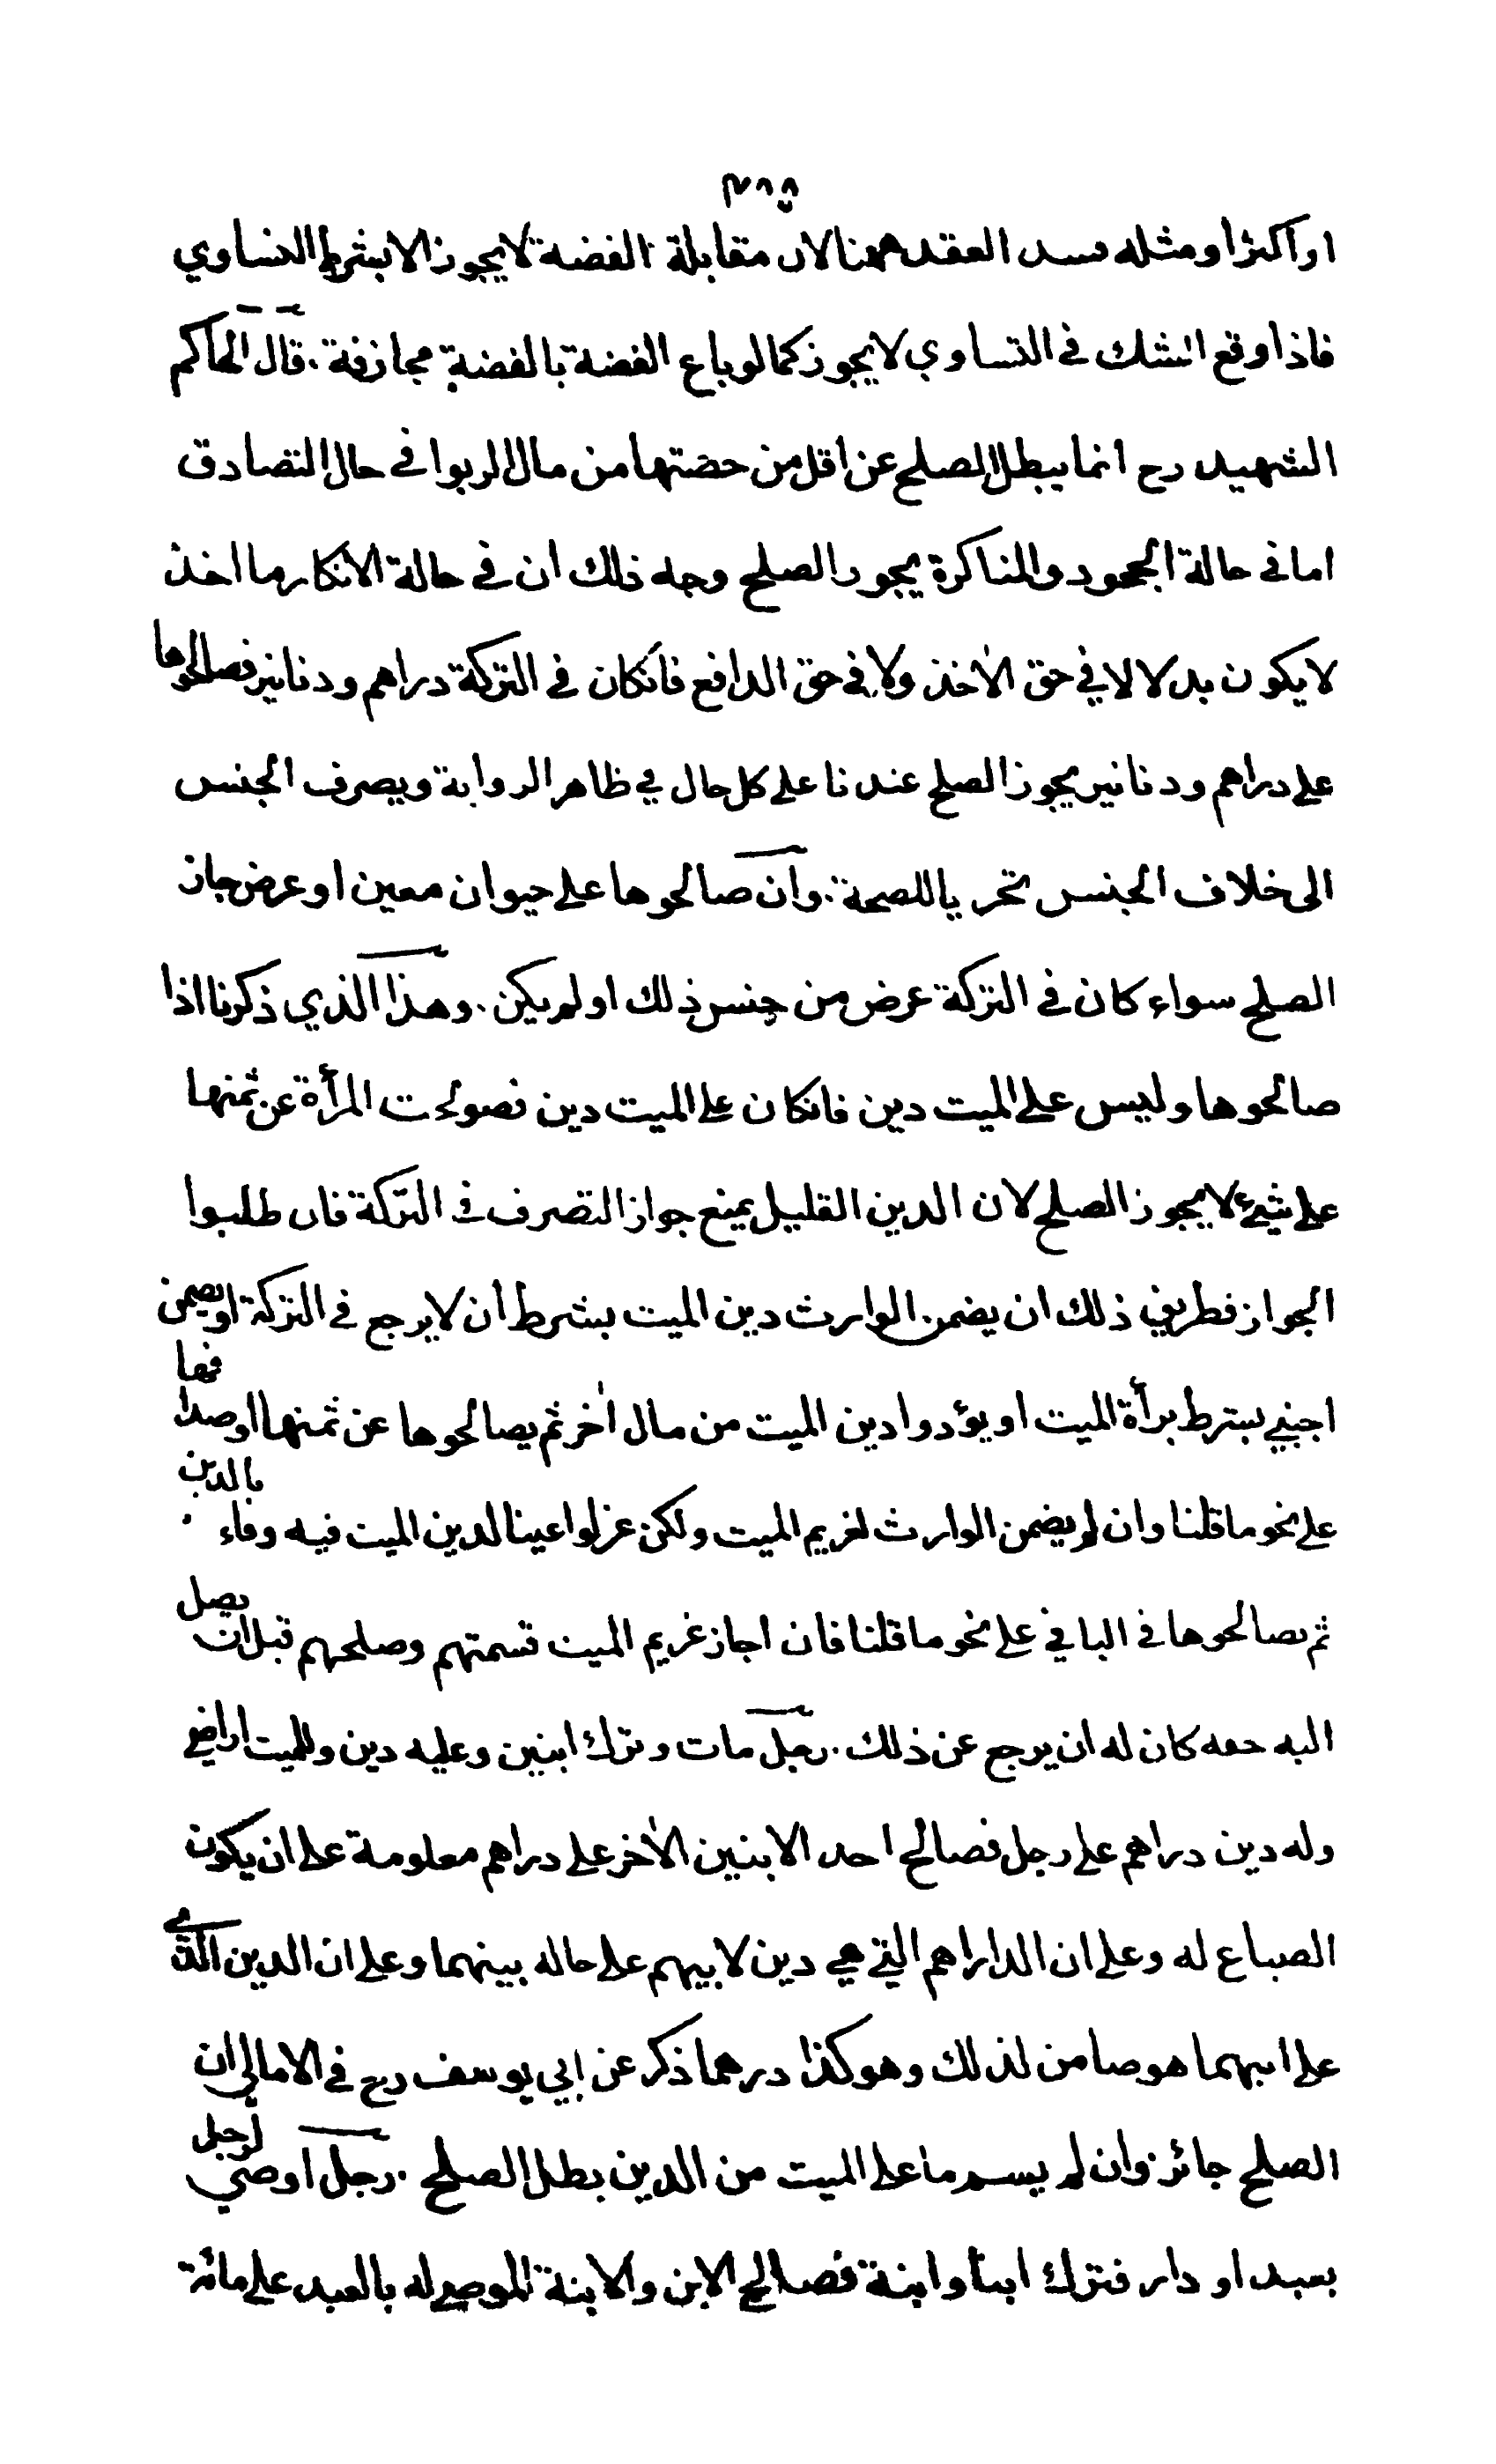 ٣١٨
او اكثر او مثله فسد العقد ههنا لان مقابلة الفضة لا يجوز الا بشرط التساوي
فاذا وقع الشك في التساوي لا يجوز كما لو باع الفضة بالفضة مجازفة. قال الحاكم
الشهيد رح انما يبطل الصلح عن اقل من حصتها من مال الربوا في حال التصادق
اما في حالة الجحود والمناكرة يجوز الصلح وجه ذلك ان في حالة الانكار ما اخذ
لا يكون بدلا لا في حق الاٰخذ ولا في حق الدافع فانكان في التركة دراهم ودنانير فصالحوها
على دراهم ودنانير يجوز الصلح عندنا على كل حال في ظاهر الرواية ويصرف الجنس
الى خلاف الجنس تحريا للصحة. وان صالحوها على حيوان معين او عرض جاز
الصلح سواء كان في التركة عرض من جنس ذلك او لم يكن. وهذا الذي ذكرنا اذا
صالحوها وليس على الميت دين فانكان على الميت دين فصولحت المرأة عن ثمنها
على شيء لا يجوز الصلح لان الدين القليل يمنع جواز التصرف في التركة فان طلبوا
الجواز فطريق ذلك ان يضمن الوارث دين الميت بشرط ان لا يرجع في التركة او يضمن
اجنبي بشرط برأة الميت او يؤدوا دين الميت من مال اٰخر ثم يصالحوها عن ثمنها او صداقها
على نحو ما قلنا وان لم يضمن الوارث لغريم الميت ولكن عزلوا عينا لدين الميت فيه وفاء بالدين
ثم يصالحوها في الباقي على نحو ما قلنا فان اجاز غريم الميت قسمتهم وصلحهم قبل ان يصل
اليه حقه كان له ان يرجع عن ذلك. رجل مات وترك ابنين وعليه دين وللميت اراضي
وله دين دراهم على رجل فصالح احد الابنين الاٰخر على دراهم معلومة على ان يكون
الضياع له وعلى ان الداراهم التي هي دين لابيهم على حاله بينهما وعلى ان الدين الذي
على ابيهما هو ضامن لذلك وهو كذا درهما ذكر عن ابي يوسف رح في الامالي ان
الصلح جائز وان لم يسم ما على الميت من الدين بطل الصلح. رجل اوصى لرجل
بعبد او دار فترك ابنا وابنة فصالح الابن والابنة الموصى له بالعبد على مائة